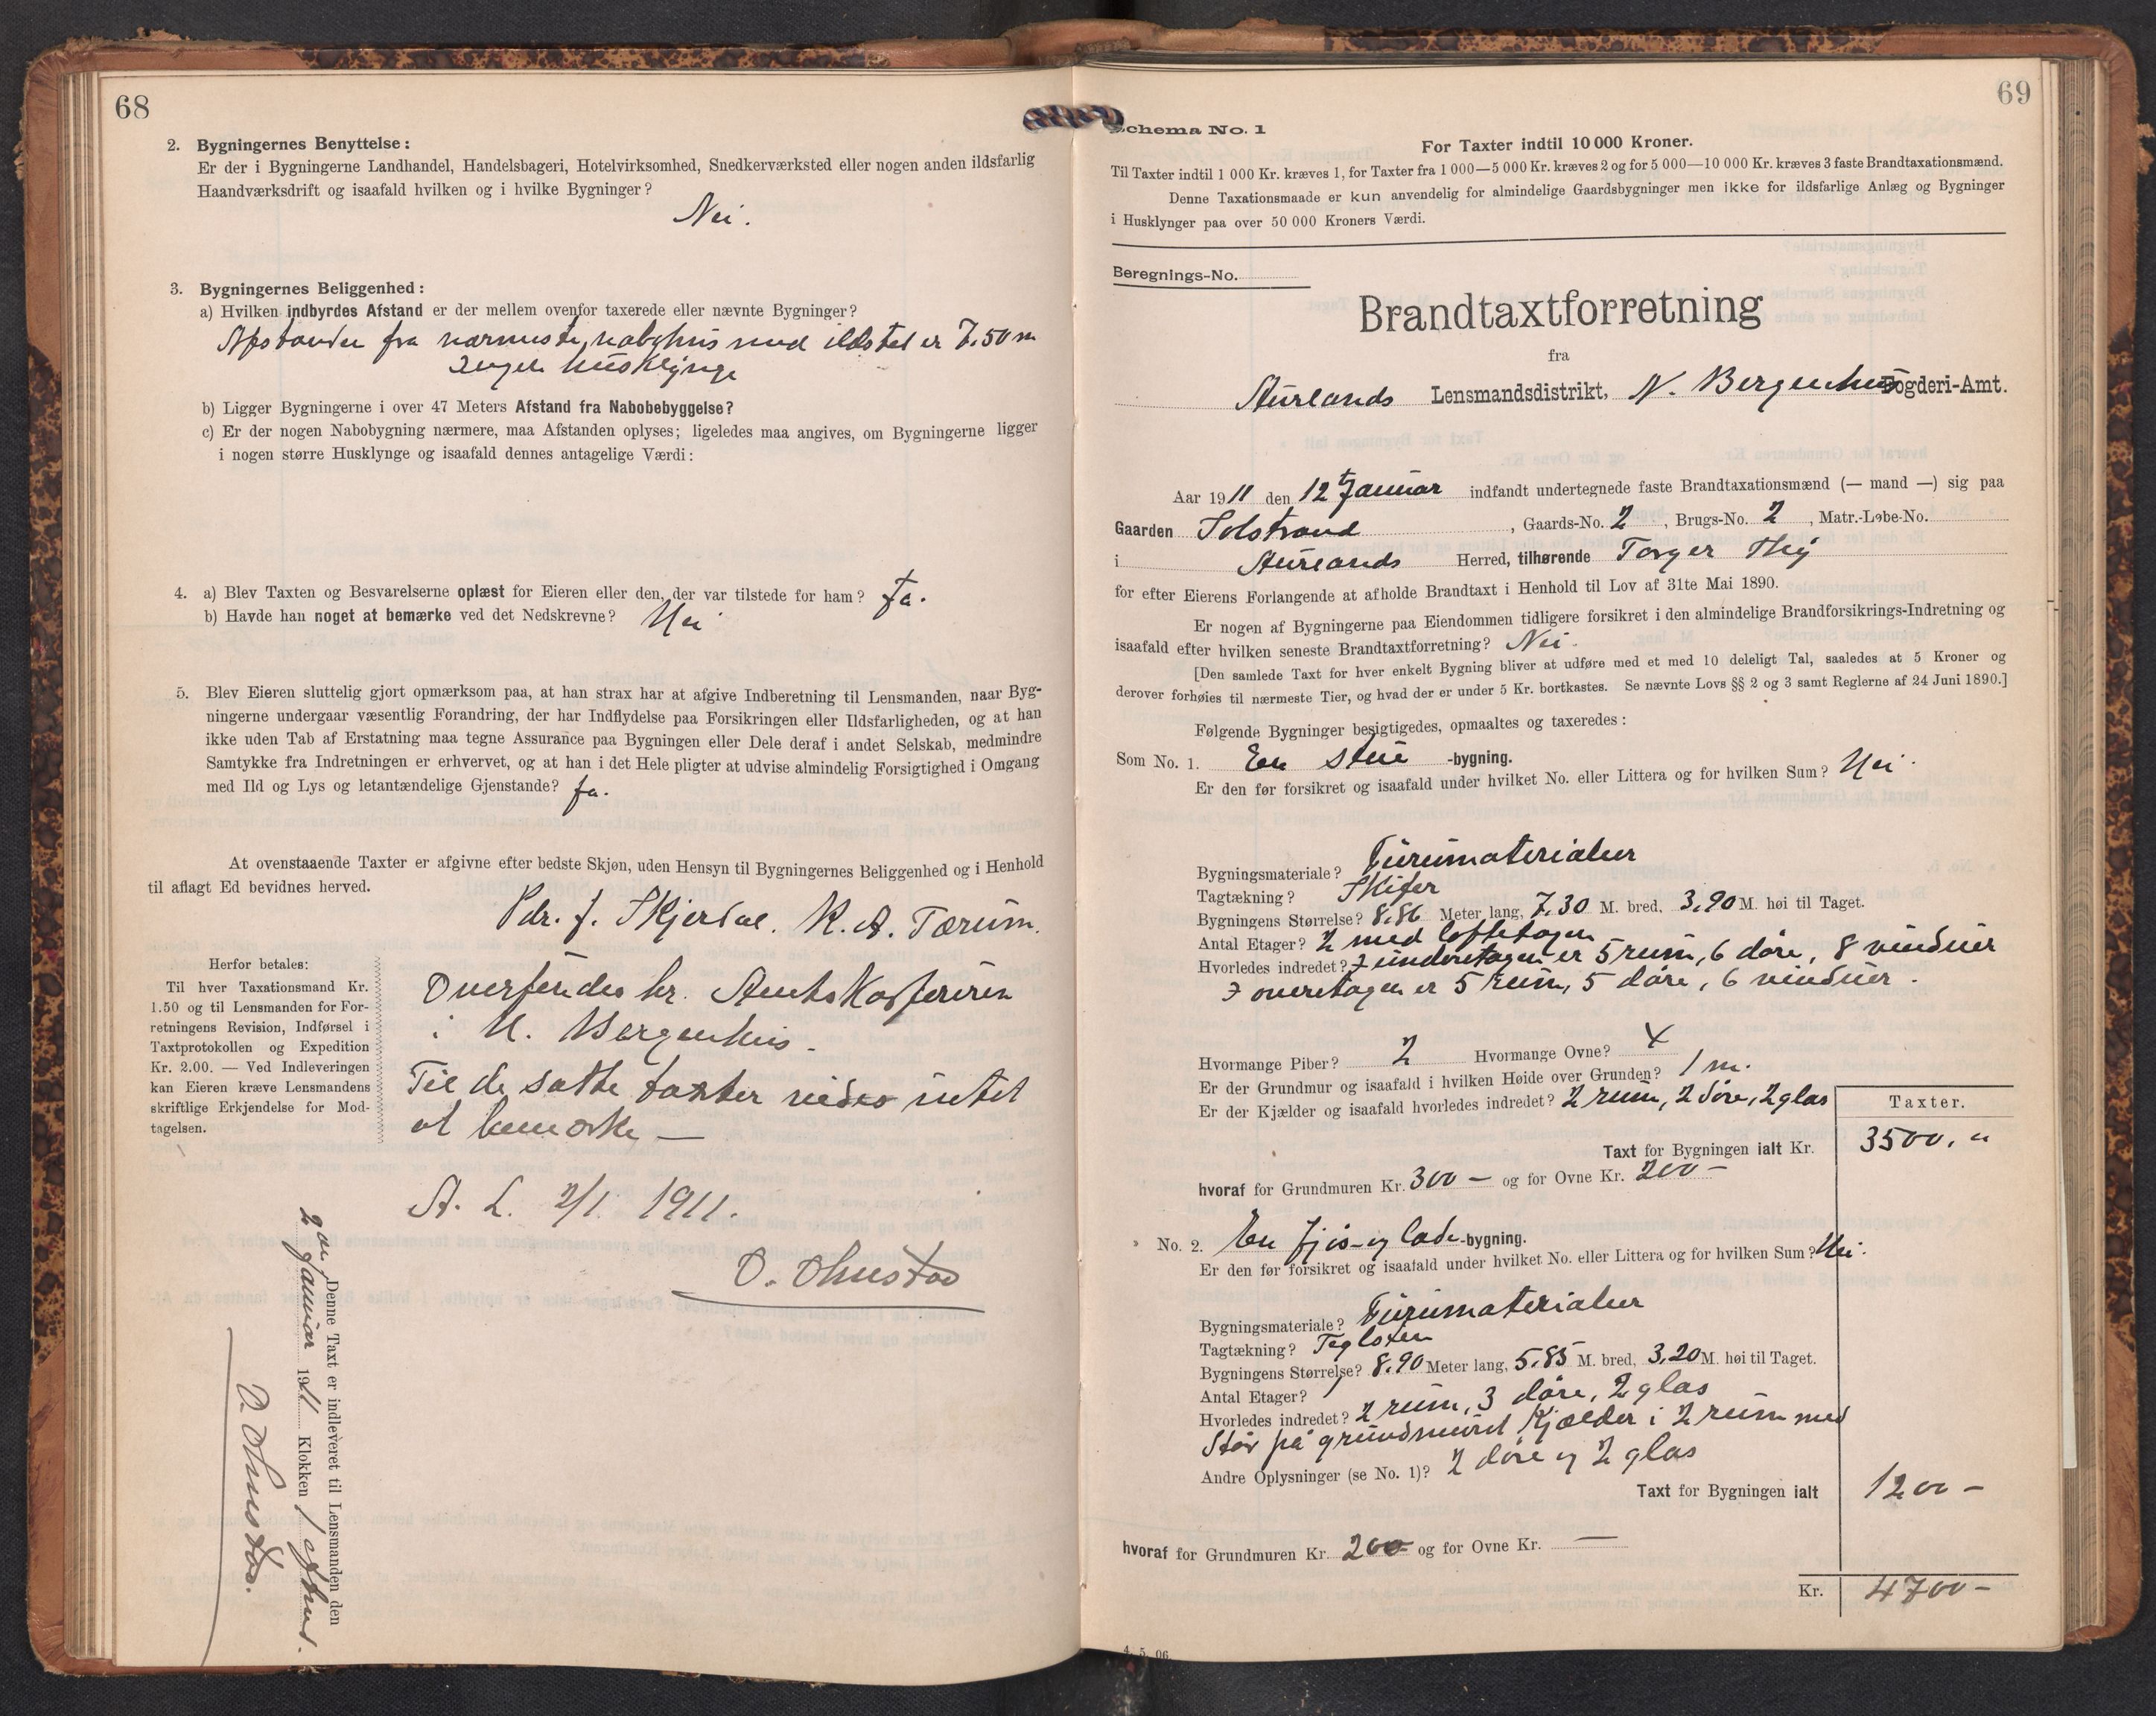 68
2. Bygningernes Benyttelse:
Er der i Bygningerne Landhandel, Handelsbageri, Hotelvirksomhed, Snedkerværksted eller nogen anden ildsfarlig
Haandværksdrift og isaafald hvilken og i hvilke Bygninger?
Nei.
3. Bygningernes Beliggenhed:
a) Hvilken indbyrdes Afstand er der mellem ovenfor taxerede eller nævnte Bygninger?
Afstanden fra nærmeste nabohus med ildsted er 7.50 m
Ingen husklynge
b) Ligger Bygningerne i over 47 Meters Afstand fra Nabobebyggelse?
c) Er der nogen Nabobygning nærmere, maa Afstanden oplyses; ligeledes maa angives, om Bygningerne ligger
i nogen større Husklynge og isaafald dennes antagelige Værdi:
4. a) Blev Taxten og Besvarelserne oplæst for Eieren eller den, der var tilstede for ham? Ja.
b) Havde han noget at bemærke ved det Nedskrevne? Nei
5. Blev Eieren sluttelig gjort opmærksom paa, at han strax har at afgive Indberetning til Lensmanden, naar Byg-
ningerne undergaar væsentlig Forandring, der har Indflydelse paa Forsikringen eller Ildsfarligheden, og at han
ikke uden Tab af Erstatning maa tegne Assurance paa Bygningen eller Dele deraf i andet Selskab, medmindre
Samtykke fra Indretningen er erhvervet, og at han i det Hele pligter at udvise almindelig Forsigtighed i Omgang
med Ild og Lys og letantændelige Gjenstande? Ja.
At ovenstaaende Taxter er afgivne efter bedste Skjøn, uden Hensyn til Bygningernes Beliggenhed og i Henhold
til aflagt Ed bevidnes herved.
Pdr. J. Skjerdal. K. A. Tærum.
Herfor betales:
Til hver Taxationsmand Kr.
1.50 og til Lensmanden for For-
retningens Revision, Indførsel i
Taxtprotokollen og Expedition
Kr. 2.00. — Ved Indleveringen
kan Eieren kræve Lensmandens
skriftlige Erkjendelse for Mod-
tagelsen.
Oversendes hr. Amtskassereren
i N. Bergenhus.
Til de satte taxter vides intet
at bemærke —
A. L. 2/1 1911.
O. Ohnstad
Denne Taxt er indleveret til Lensmanden den
2 den Januar 1911 Klokken 1 efterm.
O. Ohnstad.
69
Schema No. 1
For Taxter indtil 10 000 Kroner.
Til Taxter indtil 1 000 Kr. kræves 1, for Taxter fra 1 000—5 000 Kr. kræves 2 og for 5 000—10 000 Kr. kræves 3 faste Brandtaxationsmænd.
Denne Taxationsmaade er kun anvendelig for almindelige Gaardsbygninger men ikke for ildsfarlige Anlæg og Bygninger
i Husklynger paa over 50 000 Kroners Værdi.
Beregnings-No.
Brandtaxtforretning
fra
Aurlands Lensmandsdistrikt, N. Bergenhus Fogderi-Amt.
Aar 1911 den 12t Januar indfandt undertegnede faste Brandtaxationsmænd (— mand —) sig paa
Gaarden Solstrand, Gaards-No. 2, Brugs-No. 2, Matr.-Løbe-No.
i Aurlands Herred, tilhørende Torger
for efter Eierens Forlangende at afholde Brandtaxt i Henhold til Lov af 31te Mai 1890.
Er nogen af Bygningerne paa Eiendommen tidligere forsikret i den almindelige Brandforsikrings-Indretning og
isaafald efter hvilken seneste Brandtaxtforretning? Nei.
[Den samlede Taxt for hver enkelt Bygning bliver at udføre med et med 10 deleligt Tal, saaledes at 5 Kroner og
derover forhøies til nærmeste Tier, og hvad der er under 5 Kr. bortkastes. Se nævnte Lovs §§ 2 og 3 samt Reglerne af 24 Juni 1890.]
Følgende Bygninger besigtigedes, opmaaltes og taxeredes:
Som No. 1. En stue -bygning.
Er den før forsikret og isaafald under hvilket No. eller Littera og for hvilken Sum? Nei.
Bygningsmateriale? Furumaterialier
Tagtækning? Skifer
Bygningens Størrelse? 8.86 Meter lang, 7.30 M. bred, 3.90 M. høi til Taget.
Antal Etager? 2 med loftetagen
Hvorledes indredet? I underetagen er 5 rum, 6 døre, 8 vinduer
I overetagen er 5 rum, 5 døre, 6 vinduer.
Hvormange Piber? 2 Hvormange Ovne? 4
Er der Grundmur og isaafald i hvilken Høide over Grunden? 1 m.
Er der Kjælder og isaafald hvorledes indredet? 2 rum, 2 døre, 2 glas
Taxter.
Taxt for Bygningen ialt Kr. 3500. "
hvoraf for Grundmuren Kr. 300 — og for Ovne Kr. 200 —
No. 2. En fjøs- og lade -bygning.
Er den før forsikret og isaafald under hvilket No. eller Littera og for hvilken Sum? Nei.
Bygningsmateriale? Furumaterialier
Tagtækning? Teglsten
Bygningens Størrelse? 8.90 Meter lang, 5.85 M. bred, 3.20 M. høi til Taget.
Antal Etager? 1
Hvorledes indredet? 2 rum, 3 døre, 2 glas
Står på grundmuret Kjælder i 2 rum med
Andre Oplysninger (se No. 1)? 2 døre og 2 glas
Taxt for Bygningen ialt 1200 —
hvoraf for Grundmuren Kr. 200 — og for Ovne Kr. —
Kr. 4700 —
4. 5. 06